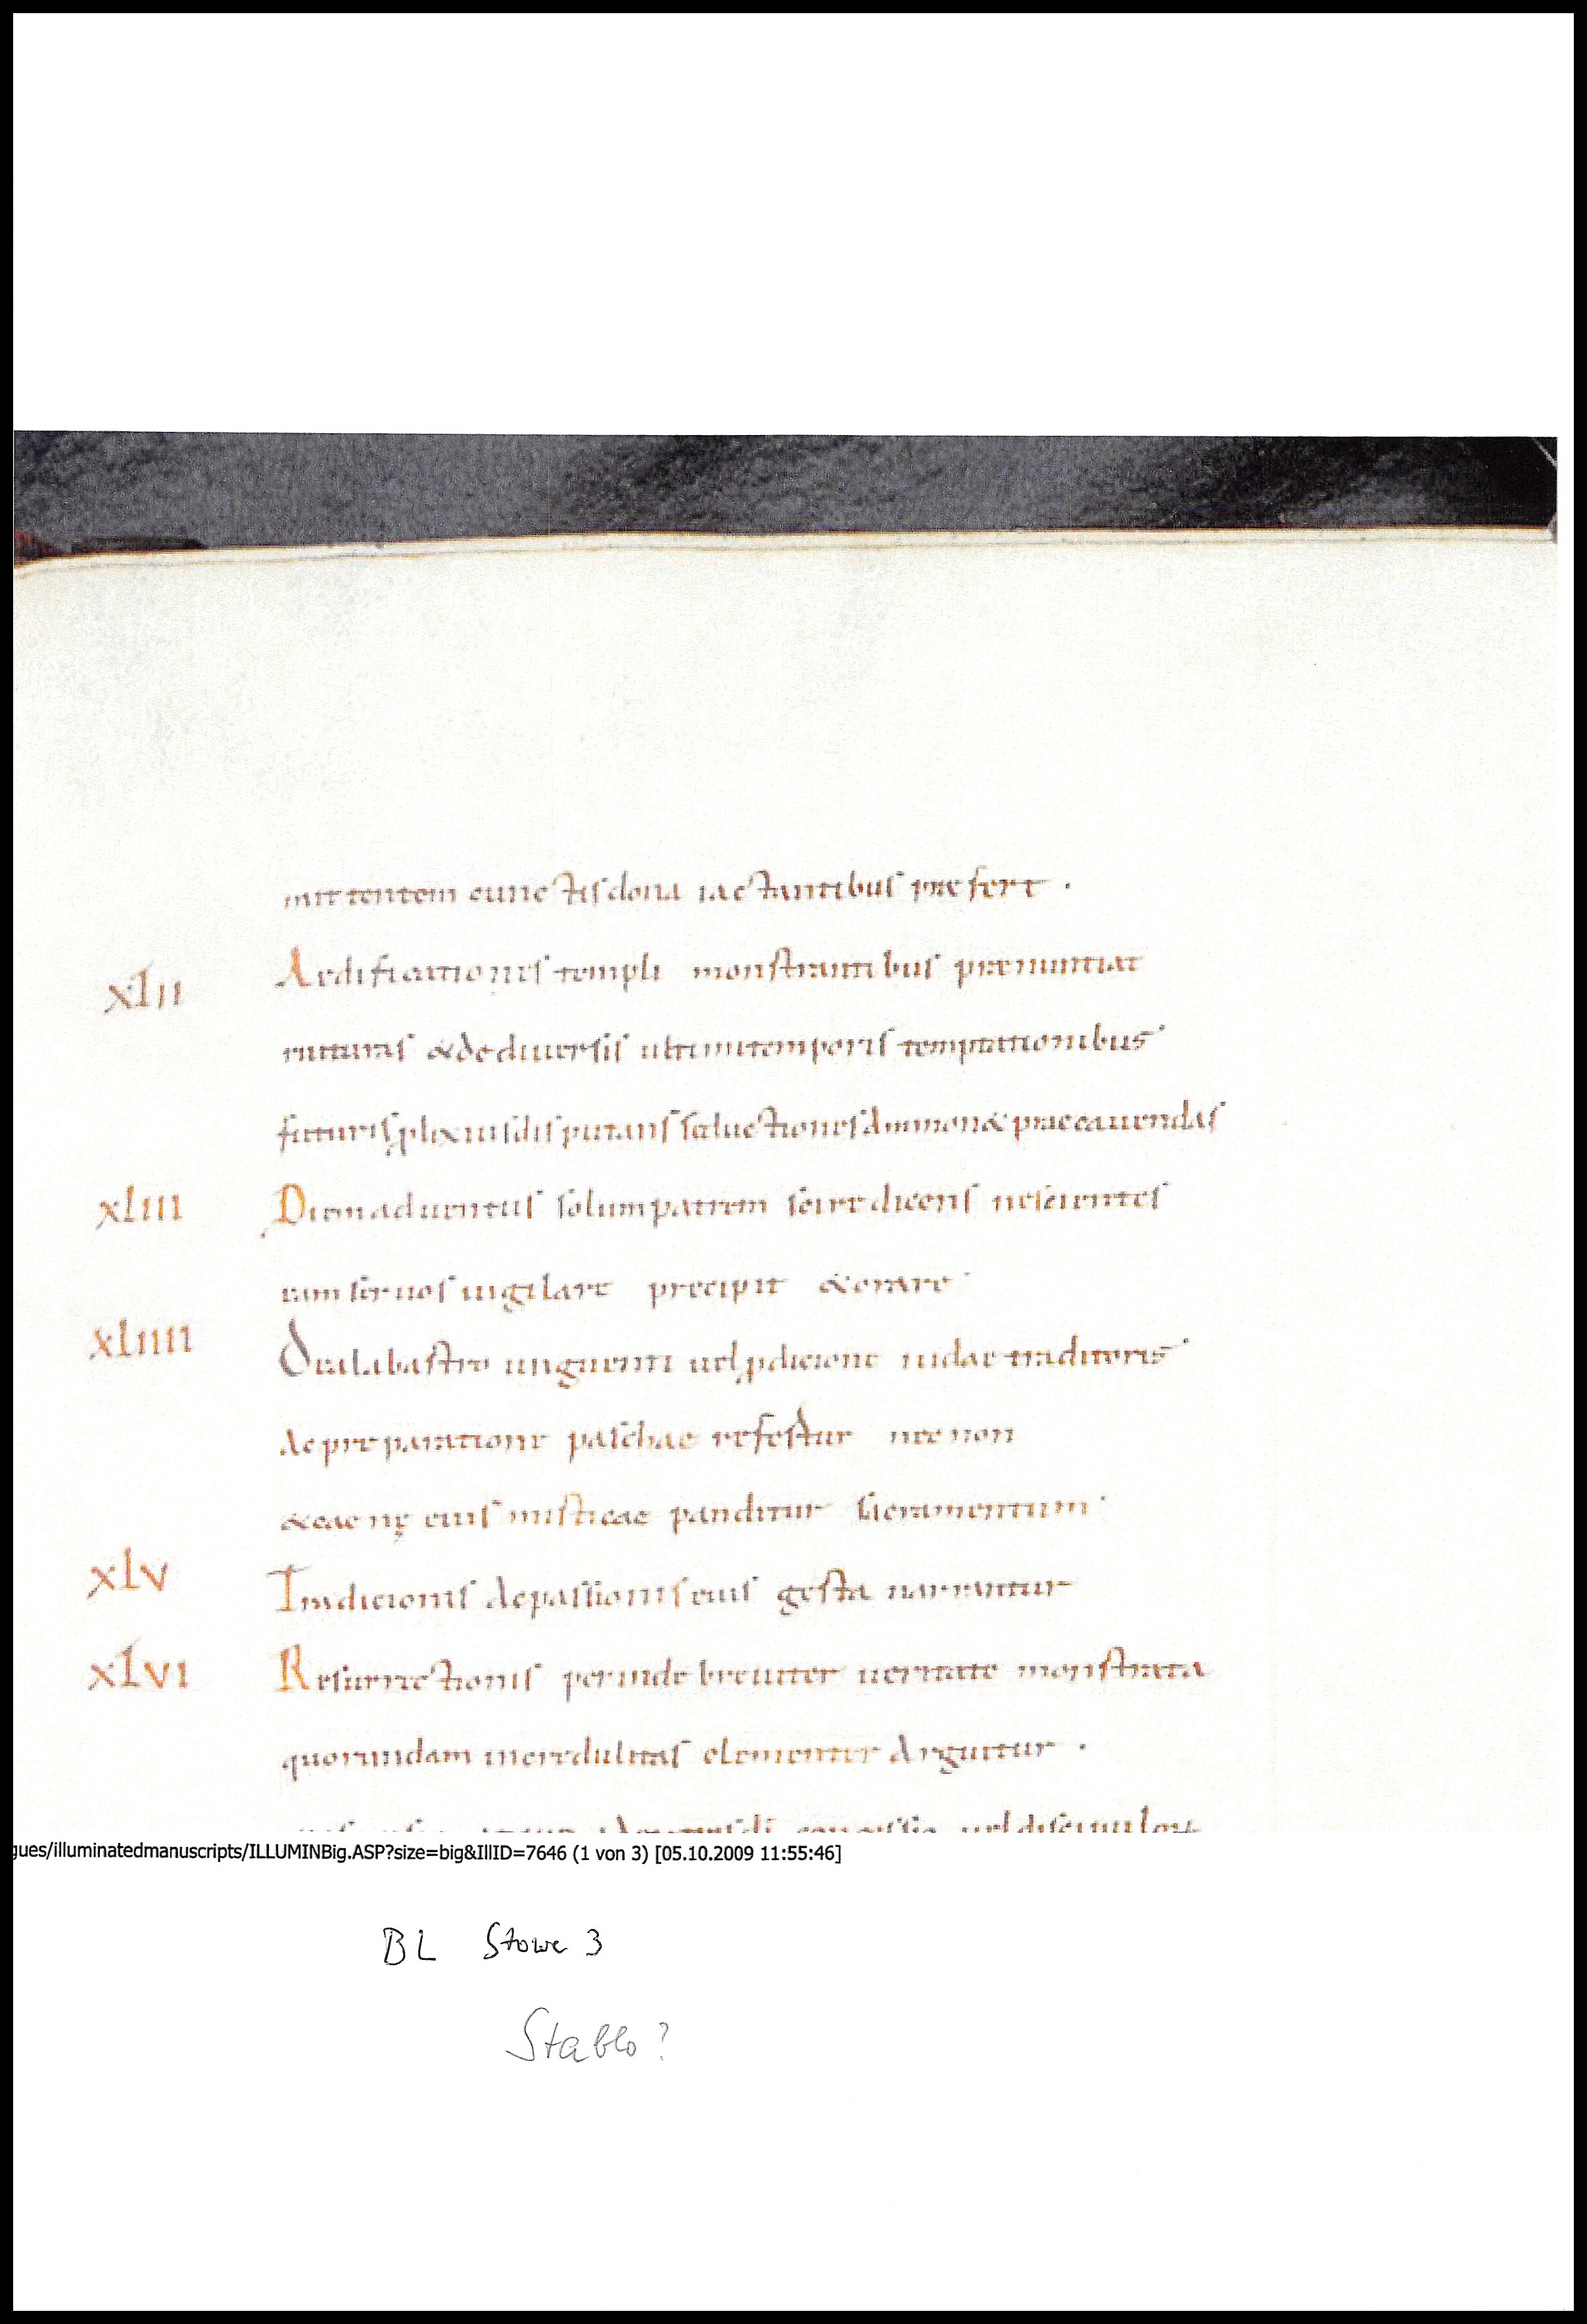 mittentem cunctis dona iactantibus prefert .
xlii Aedificationes templi monstrantibus prenuntiat
ruituras & de diuersis ultimi temporis temptationibus
futuris plixius disputans seductiones ammon& praecauendas
xliii Diem aduentus solum patrem scire dicens nescientes
tam seruos uigilare precipit & orare
xliiii De alabastro unguenti uel pdicione iudae traditoris
ac preparatione paschae refertur nec non
& caenę eius misticae panditur sacramentum
xlv Tradicionis ac passionis eius gesta narrantur
xlvi Resurrectionis perinde breuiter ueritate monstrata
quorundam incredulitas clementer arguitur .
gues/illuminatedmanuscripts/ILLUMINBig.ASP?size=big&IllID=7646 (1 von 3) [05.10.2009 11:55:46]
BL Stowe 3
Stablo?